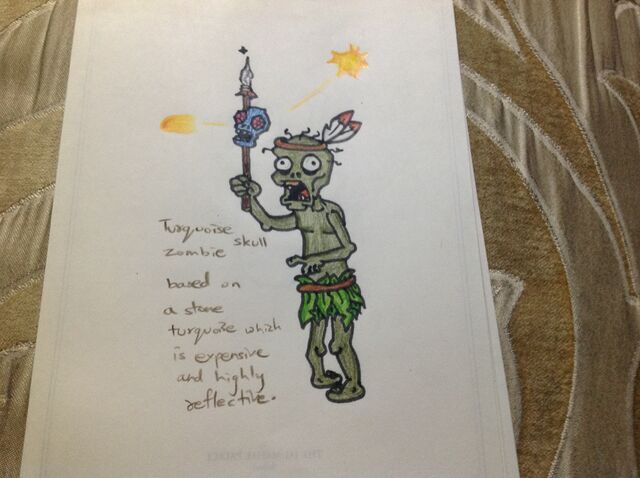 Turquoise skull
zombie
based on
a stone
turquoise which
is expensive
and highly
reflective.